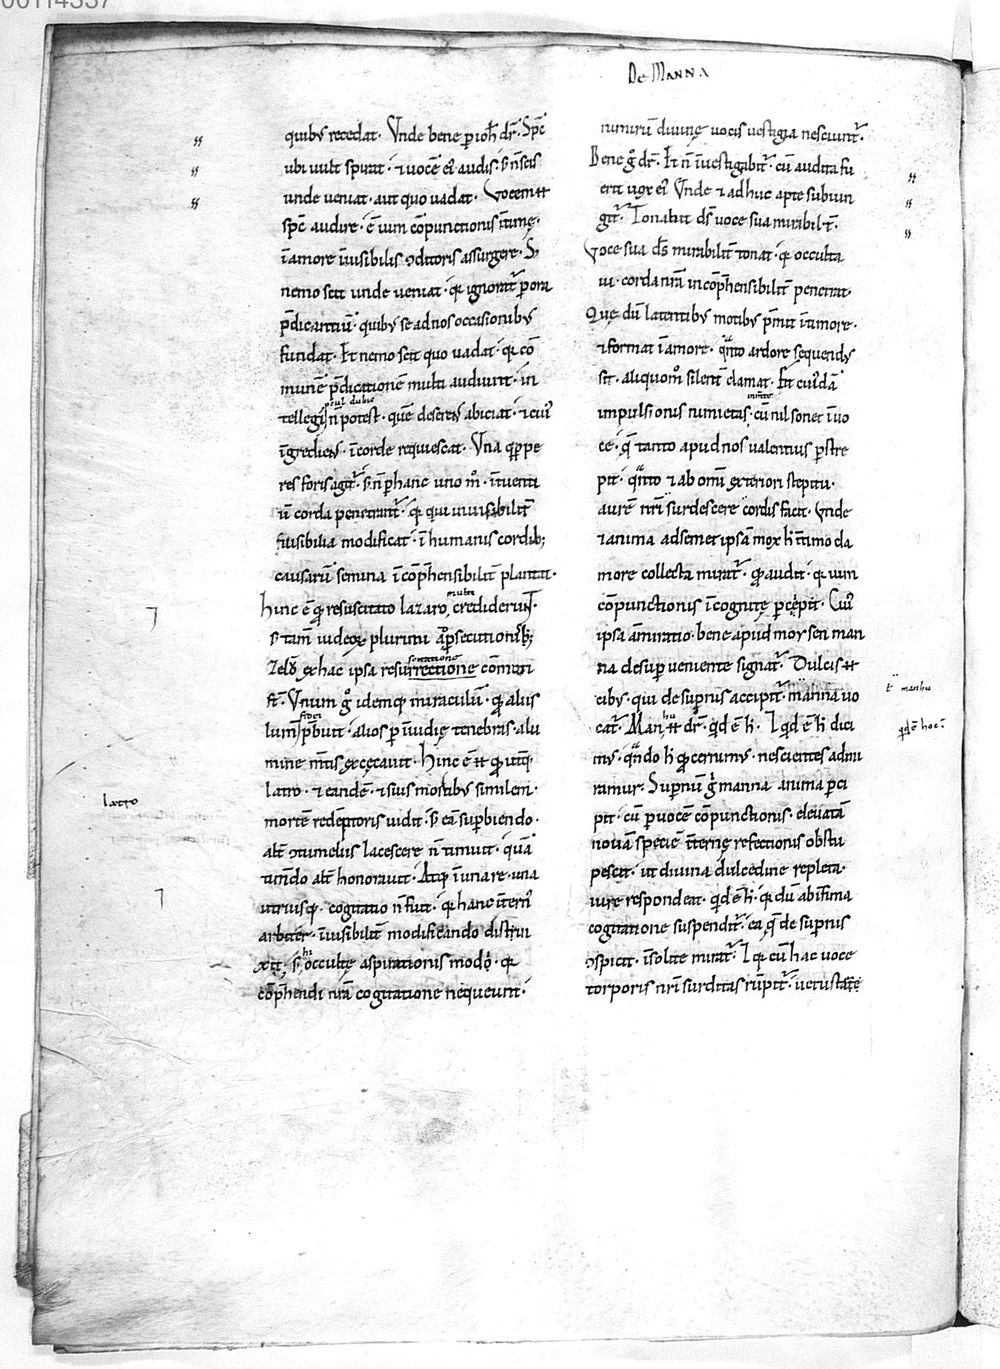 00114337
De Manna
quibꝰ recedat. Vnde bene ꝑ ioh̄ dr̄. Sp̄c
ubi uult spirat. ⁊ uocē eiꝰ audis. s; n̄ scis
unde ueniat. aut quo uadat. Vocem
sp̄c audire. ē uim cōpunctionis ītimę.
ī amore īuisibilis ↄditoris assurgere. S;
nemo scit unde ueniat. qꝛ ignorat̄
p̄dicantiū. quibꝰ se ad nos occasionibꝰ
fundat. Et nemo scit quo uadat. qꝛ cō
munē p̄dicationē multi audiunt. in
tellegi n̄ potest. quē deserens abiciat. ⁊ cuiꝰ
īgrediens. ī corde requiescat. Vna
res foris agit̄. s; n̄ ꝑ hanc uno m̊. ītuenti
ū corda penetrant̄. qꝛ qui īuisibilit̄
īuisibilia modificat. ī humanis cordib;
causarū semina īcōp̄hensibilit̄ plantat.
hinc ē qꝫ resuscitato lazaro, multi crediderunt.
s; tam̄ iudeoꝝ plurimi a p̄secutionib;
Zelꝰ ex hac ipsa resurrectione cōmoti
st̄. Vnum g̊ idemqꝫ miraculū. qꝫ aliis
lum̄ fidei p̄buit. alios ꝑ īuidię tenebras. a lu
mine m̄tis excęcauit. Hinc ē qꝫ utqꝫ
latro. ⁊ eandē. ⁊ suis mortibꝰ similem.
mortē redēptoris uidit. s; eā supbiendo.
alt̄ ↄtumeliis lacescere n̄ timuit. quā
timēdo alt̄ honorauit. Atqꝫ ī una re. una
utriusqꝫ cogitatio n̄ fuit. qꝛ hanc īternꝰ
arbiter. īuisibilit̄ modificando distinx
xit. s; occultę aspirationis modo. qꝛ
cōp̄hendi nr̄a cogitatione nequeunt.
latro
nimirū diuinę uocis uestigia nesciunt̄.
Bene g̊ dr̄. Et n̄ īuestigabit̄. cū audita fu
erit uox eiꝰ. Vnde ⁊ adhuc apte subiun
git̄. Tonabit ds̄ uoce sua mirabilit̄.
Voce sua ds̄ mirabilit̄ tonat. qꝛ occulta
ui. corda nr̄a incōp̄hensibilit̄ penetrat.
Quę dū latentibꝰ motibꝰ p̄mit ī timore.
⁊ format ī amore. qn̄to ardore sequendꝰ
sit. aliquom̊ silent̄ clamat. Fit cuiꝰdā
impulsionis nimietas. cū nil sonet ī uo
ce. quę tanto apud nos ualentius ꝑstre
pit. qn̄to ⁊ ab omī exteriori strepitu.
aurē nr̄i surdescere cordis facit. Vnde
⁊ anima ad semet ipsā mox h̄ ītimo cla
more collecta mirat̄. qꝫ audit. qꝛ uim
cōpunctionis īcognitę ꝑcepit. Cuiꝰ
ipsa āmiratio. bene apud moysen man
na desup ueniente signat̄. Dulcis
cibꝰ. qui de supnis accipit̄. manna uo
cat̄. Manhu dr̄. qd̄ ē h̄. ⁊ qd̄ ē h̄ dici
mꝰ. qn̄do h̄ qꝫ cernimꝰ. nescientes admi
ramur. Supnū g̊ manna anima ꝑci
pit. cū ꝑ uocē cōpunctionis. eleuatā
nouā speciē īternę refectionis obstu
pescit. ut diuina dulcedine repleta.
iure respondeat. qd̄ ē h̄. qꝛ dū ab īfima
cogitatione suspendit̄. ea quę de supnis
ↄspicit. īsolite mirat̄. ⁊ qꝛ cū hac uoce
torporis nr̄i surditas rūpit̄. uetustatę
ł manhu
qd̄ ē hoc